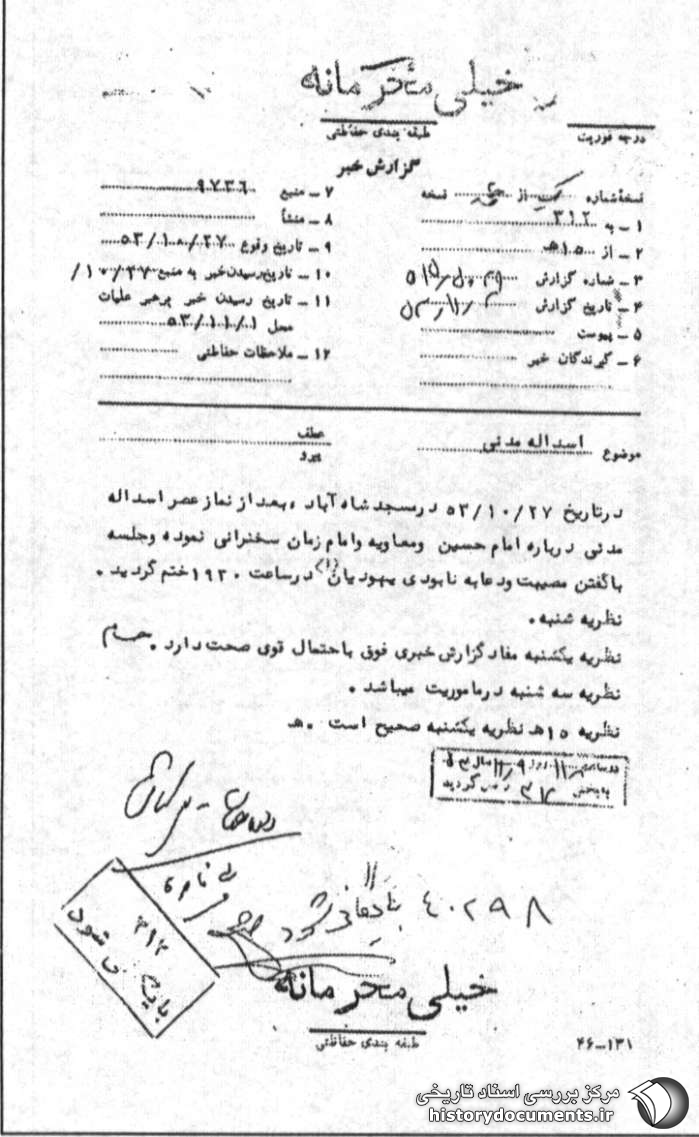 خیلی محرمانه
طبقه بندی حفاظتی
درجه فوریت
گزارش خبر
نسخهٔ شماره یک از نسخه
۱ ـ به ۳۱۲
۲ ـ از ۱۵هـ
۳ ـ شماره گزارش
۴ ـ تاریخ گزارش
۵ ـ پیوست
۶ ـ گیرندگان خبر
۷ ـ منبع ۹۷۳۶
۸ ـ منشأ
۹ ـ تاریخ وقوع ۵۳/۱۰/۲۷
۱۰ ـ تاریخ رسیدن خبر به منبع ۱۰/۲۷/
۱۱ ـ تاریخ رسیدن خبر برهبر عملیات
محل ۵۳/۱۱/۱
۱۲ ـ ملاحظات حفاظتی
موضوع اسداله مدنی
عطف
پیرو
درتاریخ ۵۳/۱۰/۲۷ درمسجد شاه آباد ، بعد از نماز عصر اسداله
مدنی درباره امام حسین ومعاویه وامام زمان سخنرانی نموده وجلسه
باگفتن مصیبت ودعا به نابودی یهودیان(۱) درساعت ۱۹۳۰ ختم گردید .
نظریه شنبه .
نظریه یکشنبه مفاد گزارش خبری فوق با احتمال قوی صحت دارد .
نظریه سه شنبه درماموریت میباشد .
نظریه ۱۵هـ نظریه یکشنبه صحیح است . هـ
۴۰۲۹۸ بایگانی شود
۳۱۲
بایگانی شود
خیلی محرمانه
طبقه بندی حفاظتی
۴۶ــ۱۳۱
مرکز بررسی اسناد تاریخی
historydocuments.ir